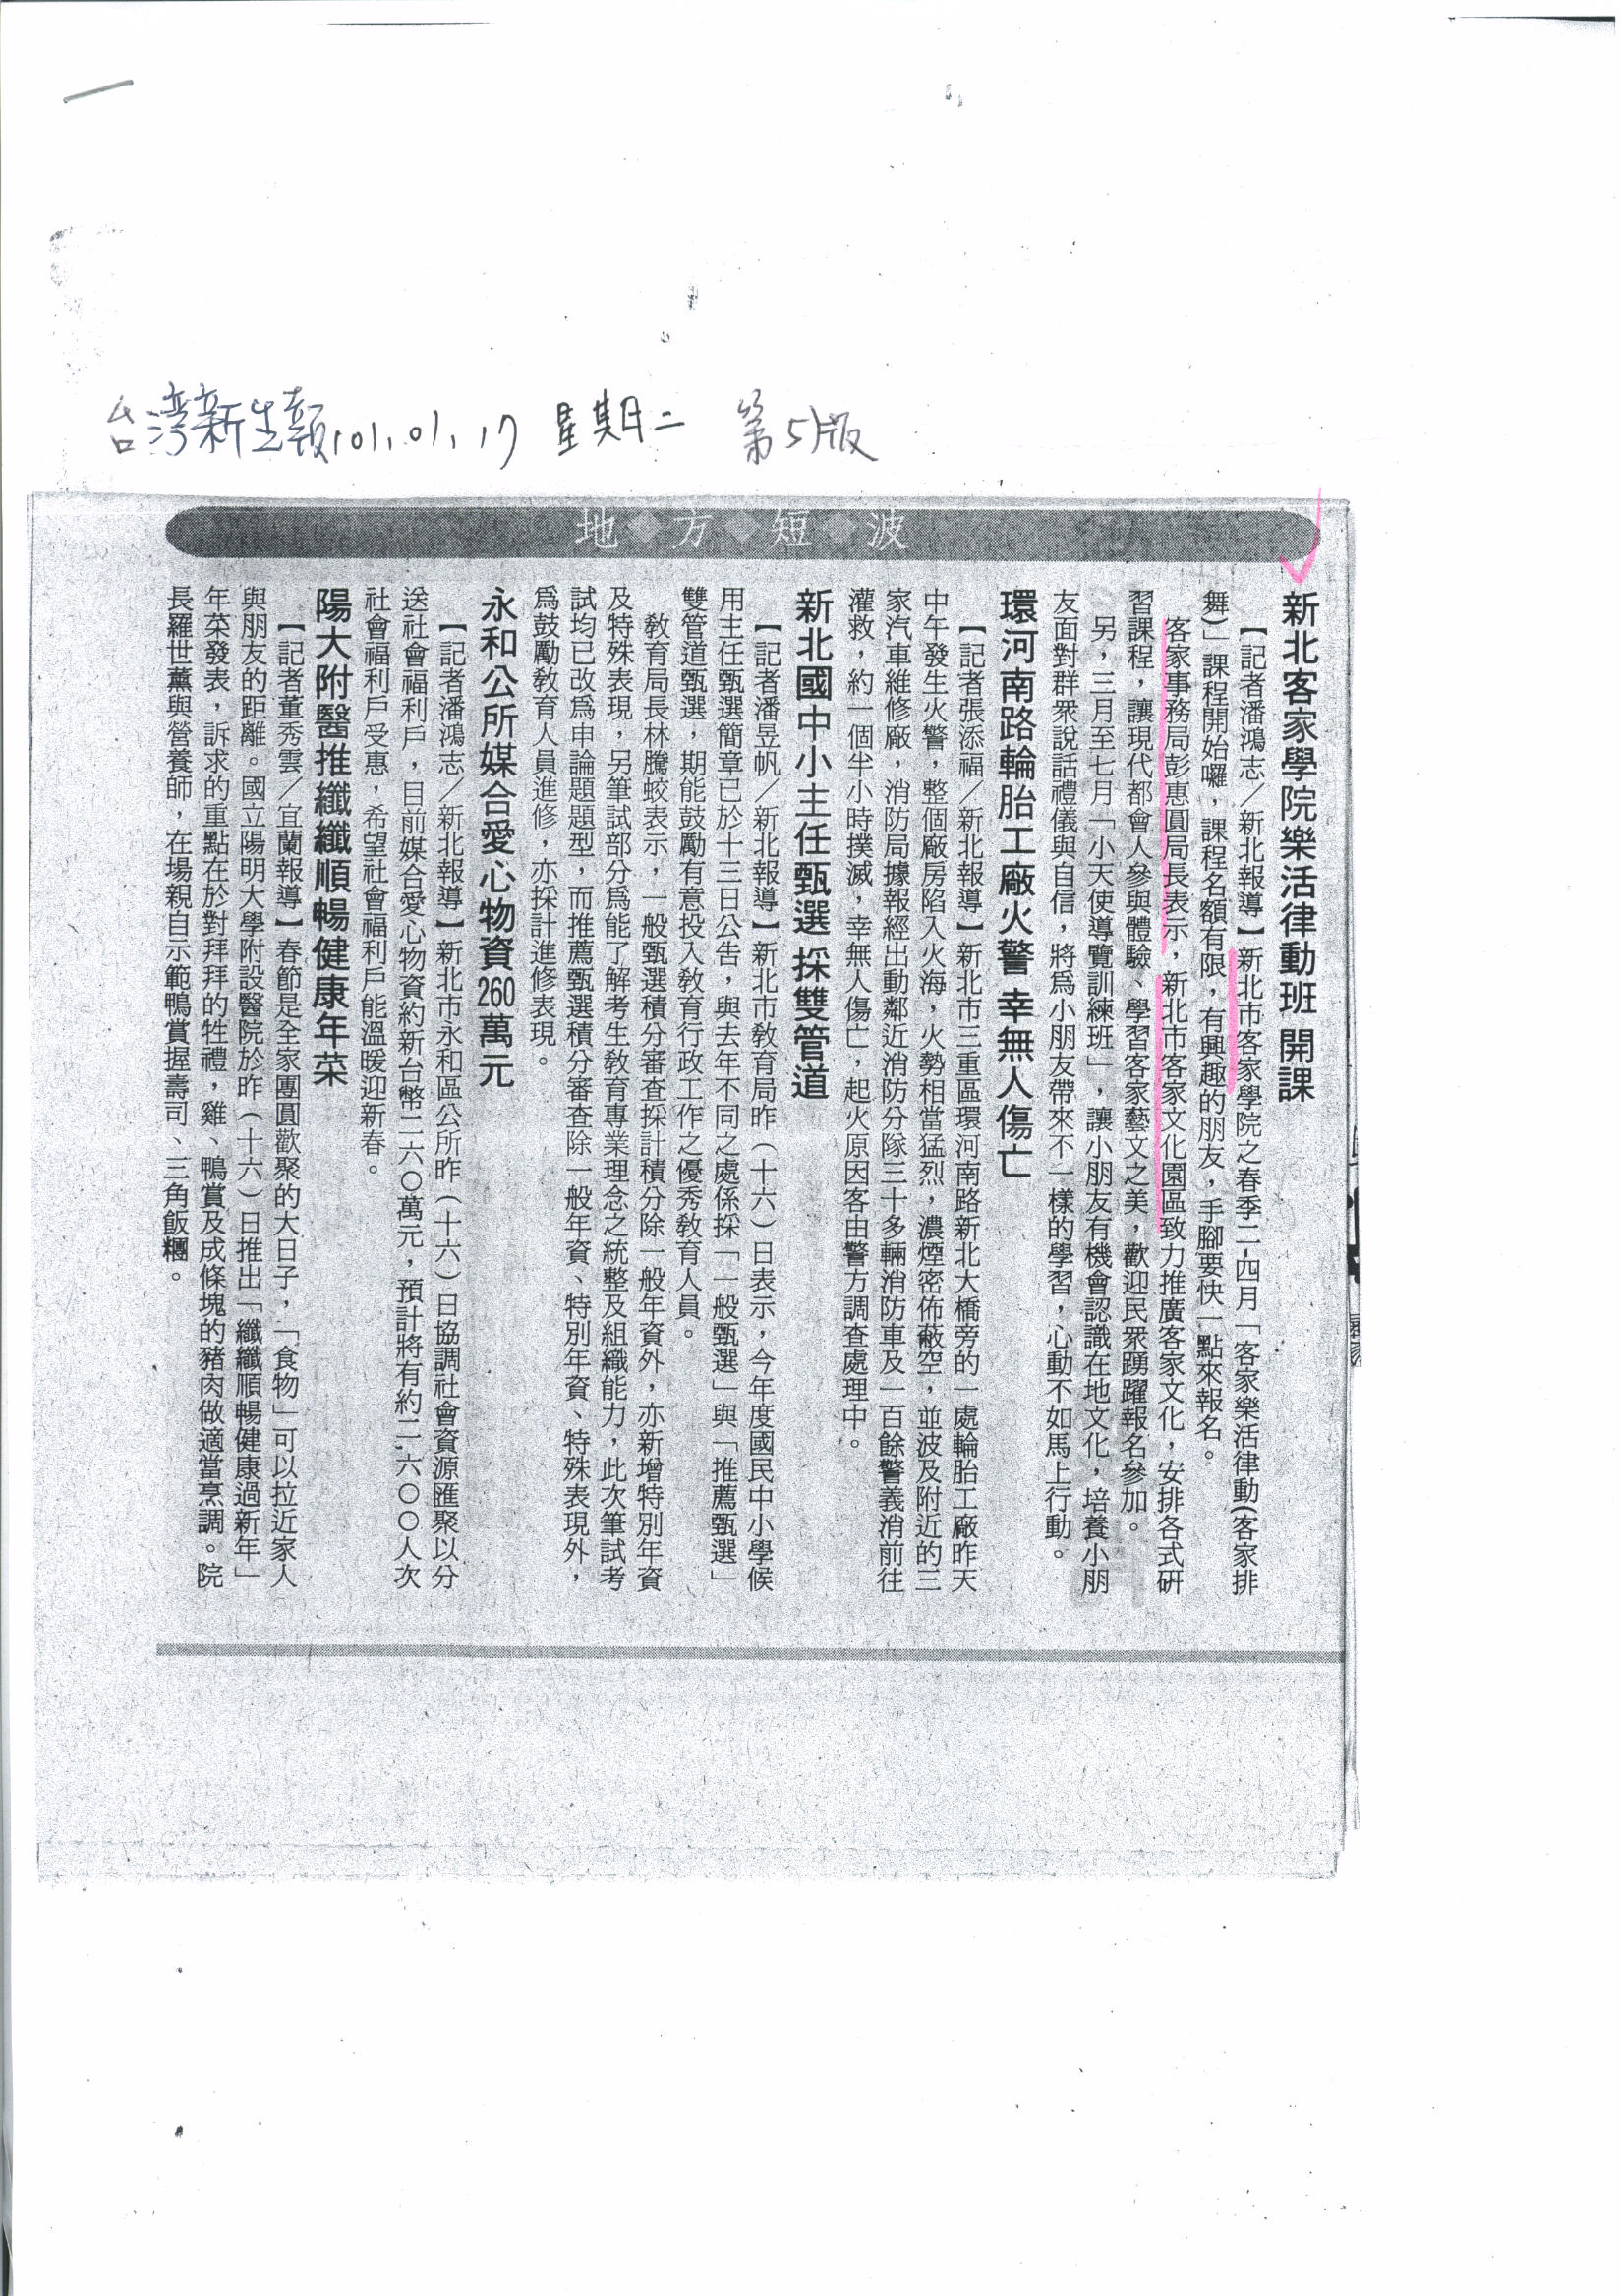 台湾新生報101.01.17 星期二 第5版
地方短波
新北客家學院樂活律動班 開課
【記者潘鴻志／新北報導】新北市客家學院之春季二-四月「客家樂活律動(客家排
舞)」課程開始囉，課程名額有限，有興趣的朋友，手腳要快一點來報名。
客家事務局彭惠圓局長表示，新北市客家文化園區致力推廣客家文化，安排各式研
習課程，讓現代都會人參與體驗、學習客家藝文之美，歡迎民眾踴躍報名參加。
另，三月至七月「小天使導覽訓練班」，讓小朋友有機會認識在地文化，培養小朋
友面對群眾說話禮儀與自信，將為小朋友帶來不一樣的學習，心動不如馬上行動。
環河南路輪胎工廠火警 幸無人傷亡
【記者張添福／新北報導】新北市三重區環河南路新北大橋旁的一處輪胎工廠昨天
中午發生火警，整個廠房陷入火海，火勢相當猛烈，濃煙密佈蔽空，並波及附近的三
家汽車維修廠，消防局據報經出動鄰近消防分隊三十多輛消防車及一百餘警義消前往
灌救，約一個半小時撲滅，幸無人傷亡，起火原因客由警方調查處理中。
新北國中小主任甄選 採雙管道
【記者潘昱帆／新北報導】新北市教育局昨（十六）日表示，今年度國民中小學候
用主任甄選簡章已於十三日公告，與去年不同之處係採「一般甄選」與「推薦甄選」
雙管道甄選，期能鼓勵有意投入教育行政工作之優秀教育人員。
教育局長林騰蛟表示，一般甄選積分審查採計積分除一般年資外，亦新增特別年資
及特殊表現，另筆試部分為能了解考生教育專業理念之統整及組織能力，此次筆試考
試均已改為申論題題型，而推薦甄選積分審查除一般年資、特別年資、特殊表現外，
為鼓勵教育人員進修，亦採計進修表現。
永和公所媒合愛心物資260萬元
【記者潘鴻志／新北報導】新北市永和區公所昨（十六）日協調社會資源匯聚以分
送社會福利戶，目前媒合愛心物資約新台幣二六〇萬元，預計將有約二六〇〇人次
社會福利戶受惠，希望社會福利戶能溫暖迎新春。
陽大附醫推纖纖順暢健康年菜
【記者董秀雲／宜蘭報導】春節是全家團圓歡聚的大日子，「食物」可以拉近家人
與朋友的距離。國立陽明大學附設醫院於昨（十六）日推出「纖纖順暢健康過新年」
年菜發表，訴求的重點在於對拜拜的牲禮，雞、鴨賞及成條塊的豬肉做適當烹調。院
長羅世薰與營養師，在場親自示範鴨賞握壽司、三角飯糰。